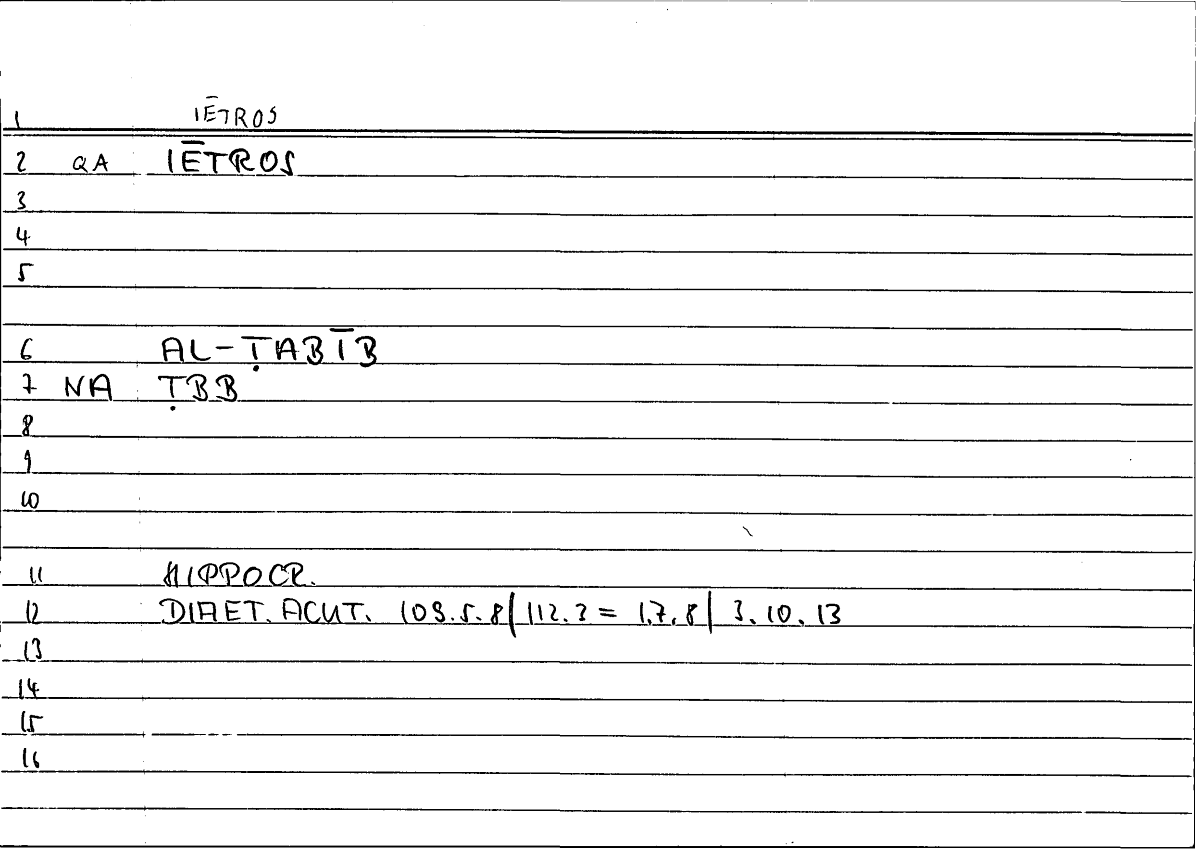 1 IĒTROS
2 QA IĒTROS
3
4
5
6 AL-ṬABĪB
7 NA ṬBB
8
9
10
11 HIPPOCR.
12 DIAET. ACUT. 109.5.8 | 112.3 = 1.7.8 | 3.10.13
13
14
15
16